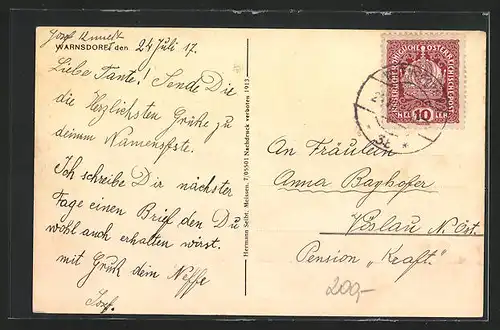 WARNSDORF, den 24 Juli 17.
Liebe Tante! Sende Dir
die Herzlichsten Grüße zu
deinem Namensfste.
Ich schreibe Dir nächster
Tage einen Brief den Du
wohl auch erhalten wirst.
mit Gruß dein Neffe
Josef.
Hermann Seibt, Meissen. 7/05501 Nachdruck verboten 1913
10
HELLER
An Fräulein
Anna Baghofer
Vöslau N. Öst.
Pension „Kraft."
200,-